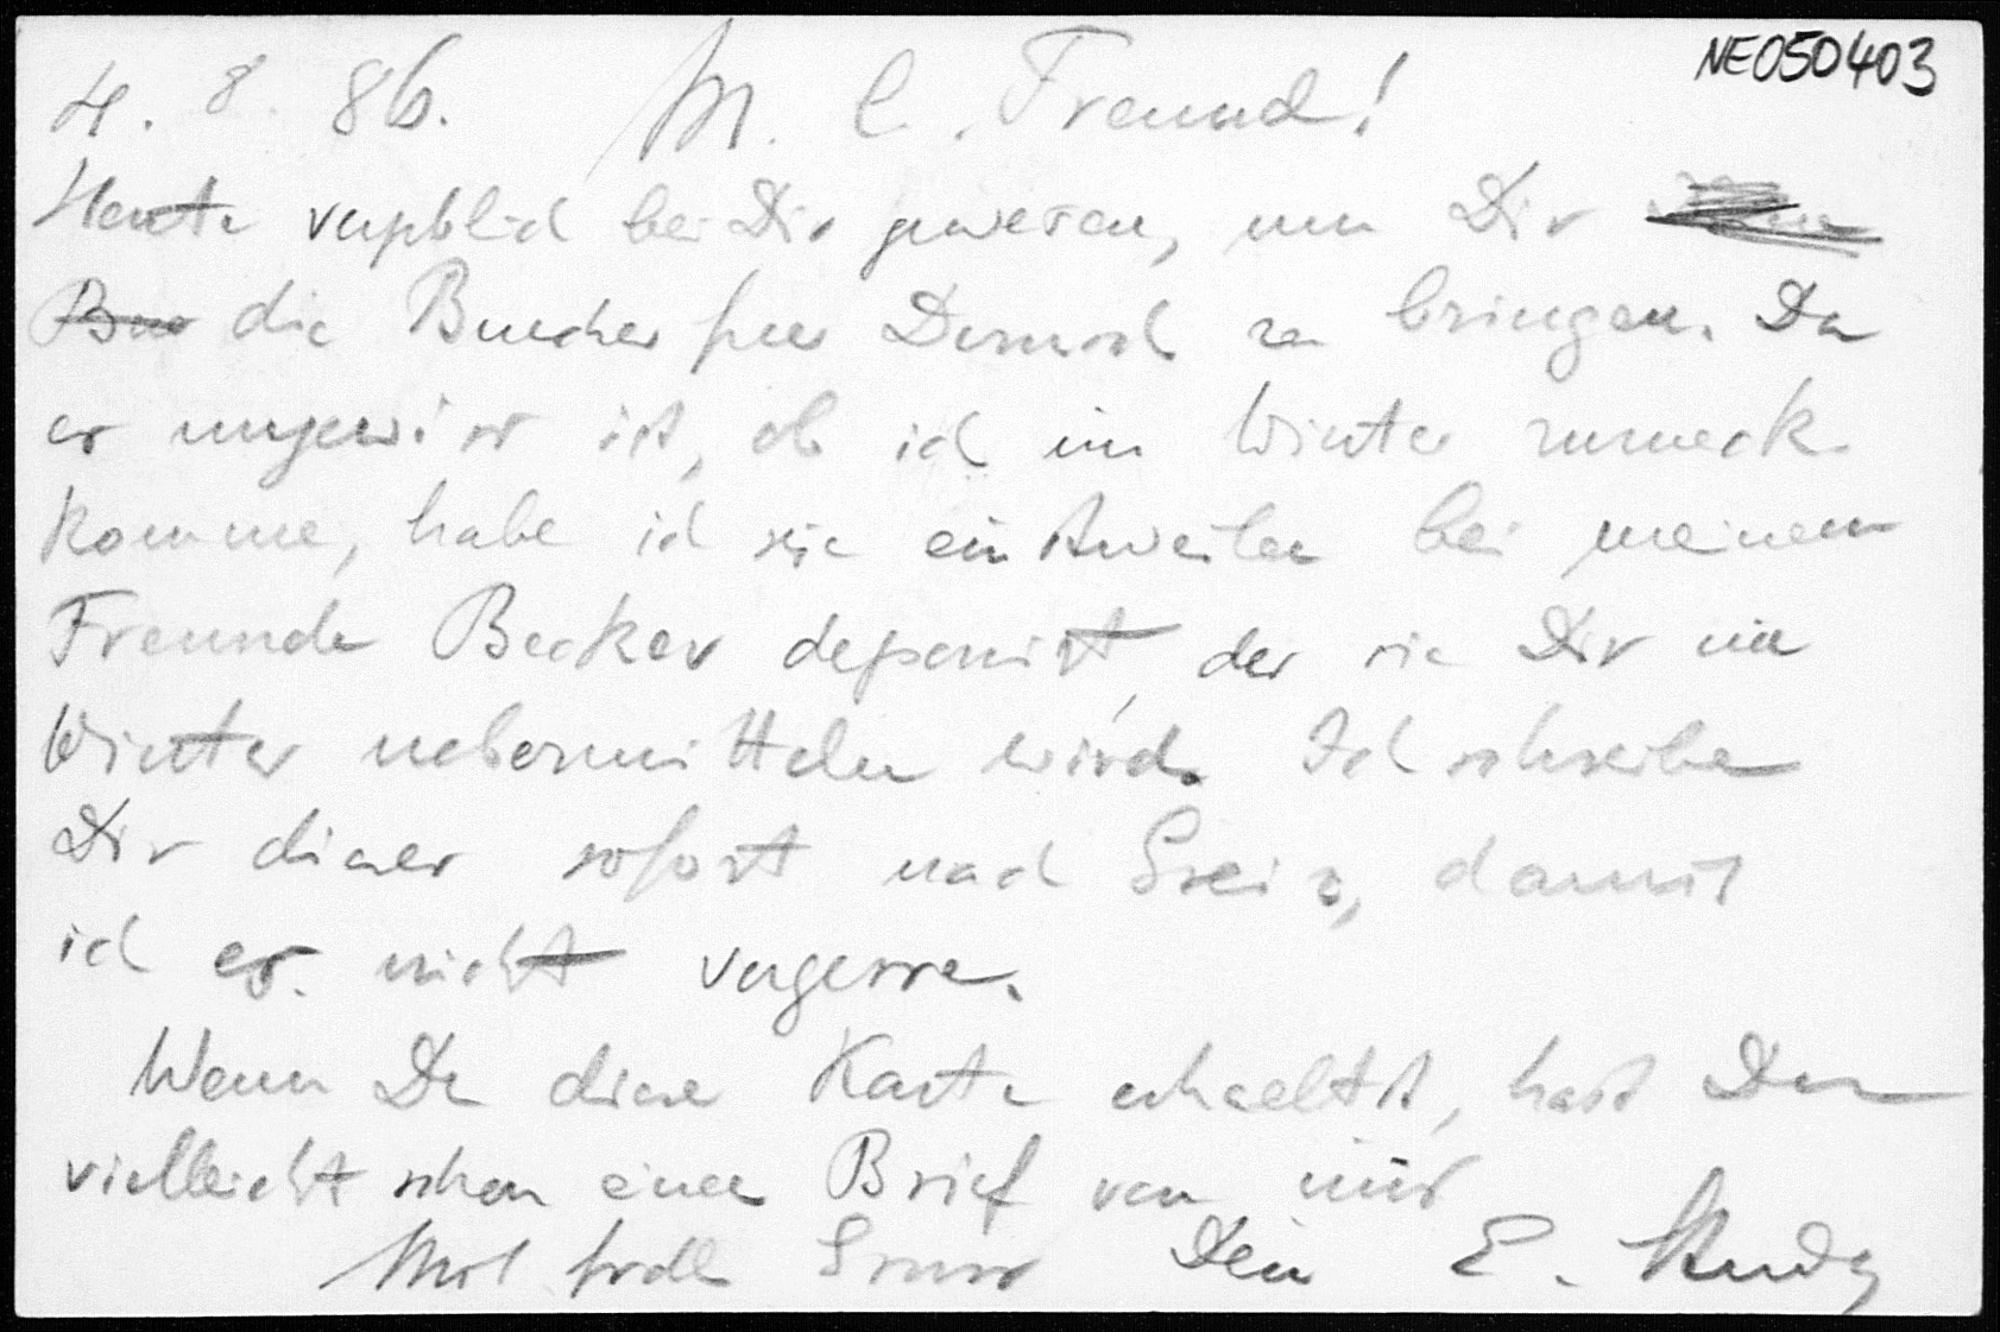 NE050403
4. 8. 86. M. l. Freund!
Heute vergeblich bei Dir gewesen, um Dir
die Buecher fuer zu bringen. Da
es ungewiss ist, ob ich im Winter zurueck-
komme, habe ich sie einstweilen bei meinem
Freunde Becker deponirt, der sie Dir im
Winter uebermitteln wird. Ich schreibe
Dir dieses sofort nach Greiz, damit
ich es nicht vergesse.
Wenn Du diese Karte erhaeltst, hast Du
vielleicht schon einen Brief von mir
Mit frdl. Gruss Dein E. Study